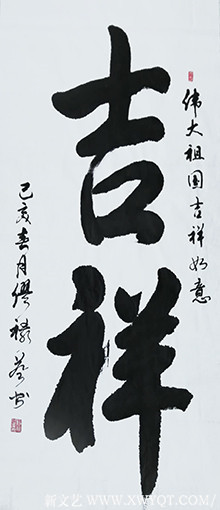 伟大祖国吉祥如意
吉祥
己亥春月
新文艺 WWW.XWYQT.COM